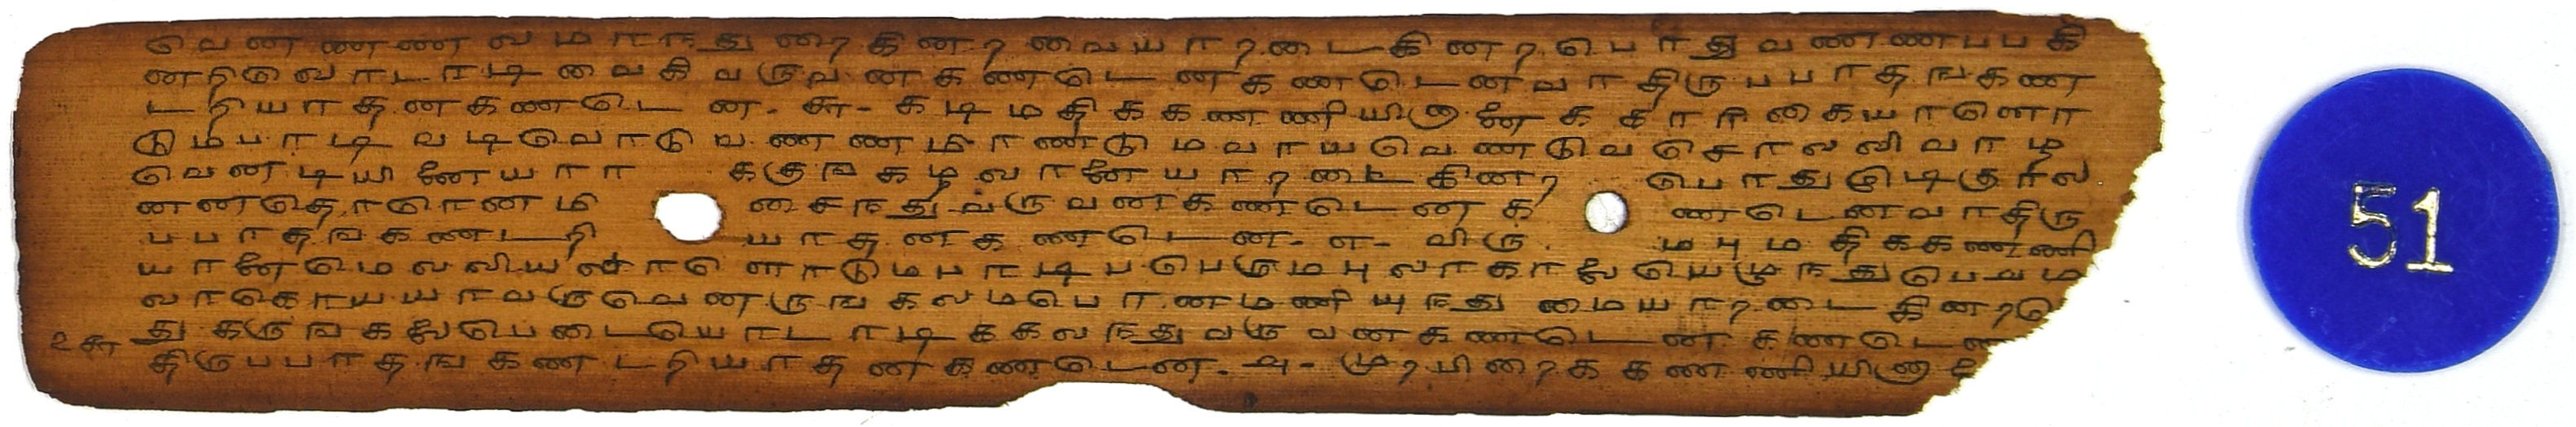 வெளளணலமாநது றைகினற வையாறடைகினறபொதுவணணபபகி
னறிலொடாடிவைகிவருவனகணடெனகணடெனவாதிருபபாதஙகண
டறியாதனகணடென - ௬ - கடிமதிககணணியினானைககாரிகையாளொ
டுமபாடிவடிவொடுவணணமிரணடுமவாயவெணடுவசொலலிவாழ
வெனடியிணையார ககுஙகழலானையாறடைகினற பொதுஇடிகுரல
னனதொரெனமி சைநதுவருவனகணடெனக ணடெனவாதிரு
பபாதஙகணடறி யாதனகணடென - ௭ - விரு மபுமதிககணணி
யானைமெலலியலாளொடுமபாடிபபெருமபுலாகாலையெழுநதுபெறும
லாகொயயாவருவெனருஙகலமபொனமணியுநது மையாறடைகினறபெ
துகருஙகலைபெடையொடாடிககலநதுவருவனகணடெனகணடென
திருபபாதஙகணடறியாதனகணடென - ௮ - முறபிறைககணணியினானை
௨௬
51